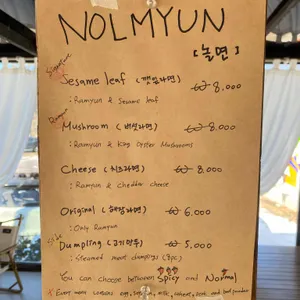 NOLMYUN
[놀면]
Signature
Sesame leaf (깻잎라면) ₩ 8,000
: Ramyun & Sesame leaf
Ramyun
Mushroom (버섯라면) ₩ 8,000
: Ramyun & King Oyster Mushrooms
Cheese (치즈라면) ₩ 8,000
: Ramyun & Cheddar cheese
Original (해장라면) ₩ 6,000
: Only Ramyun
Side
Dumpling (고기만두) ₩ 5,000
: Steamed meat dumplings (8pc)
You can choose between Spicy and Normal
* Every menu contains egg, soy, milk, wheat, beef, and